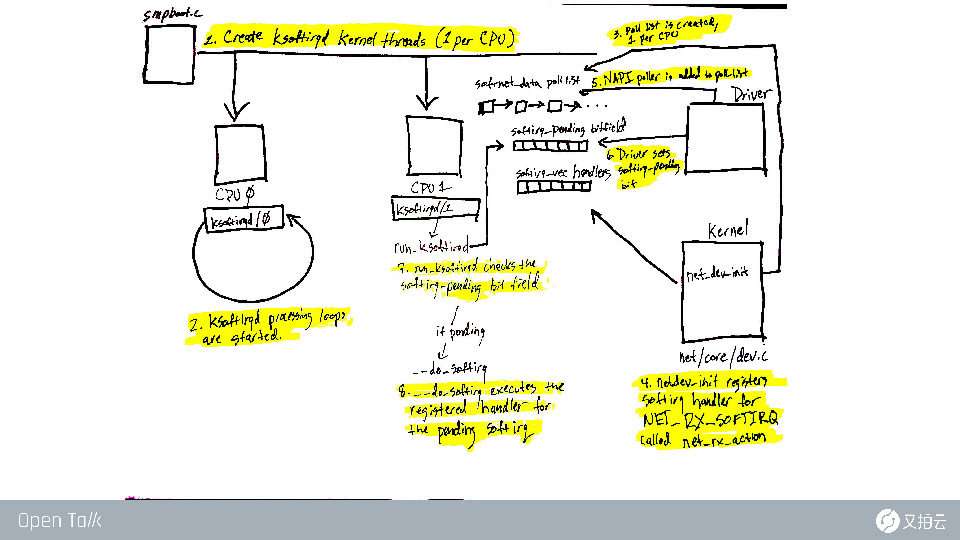 smpboot.c
1. Create ksoftirqd kernel threads (1 per CPU)
3. Poll list is created,
1 per CPU
softnet_data poll list
5. NAPI poller is added to poll list
Driver
softirq_pending bitfield
6. Driver sets
softirq-pending
bit
softirq_vec handlers
CPU 0
ksoftirqd/0
2. Ksoftirqd processing loops
are started.
CPU 1
ksoftirqd/1
run_ksoftirqd
7. run_ksoftirqd checks the
softirq-pending bit field
if pending
__do_softirq
8. __do_softirq executes the
registered handler for
the pending softirq
Kernel
net_dev_init
net/core/dev.c
4. netdev_init registers
softirq handler for
NET_RX_SOFTIRQ
called net_rx_action
Open Talk
又拍云